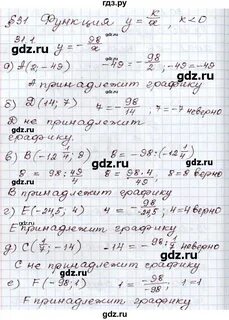 §31 Функция y = k/x, k<0
31.1 y = -98/x
а) A(2; -49) -49 = -98/2, -49 = -49
A принадлежит графику
б) D(14; 7) 7 = -98/14, 7 = -7 неверно
D не принадлежит
графику.
в) B(-12 1/4; 8) 8 = -98:(-12 1/4)
8 = 98:49/4 8 = 98·4/49, 8 = 8
B принадлежит графику
г) E(-24,5; 4) 4 = -98/-24,5, 4=4 верно
E принадлежит графику
д) C(1/7; -14) -14 = -98:1/7 неверно
C не принадлежит графику
е) F(-98; 1) 1 = -98/-98; 1=1
F принадлежит графику
gdz.ru